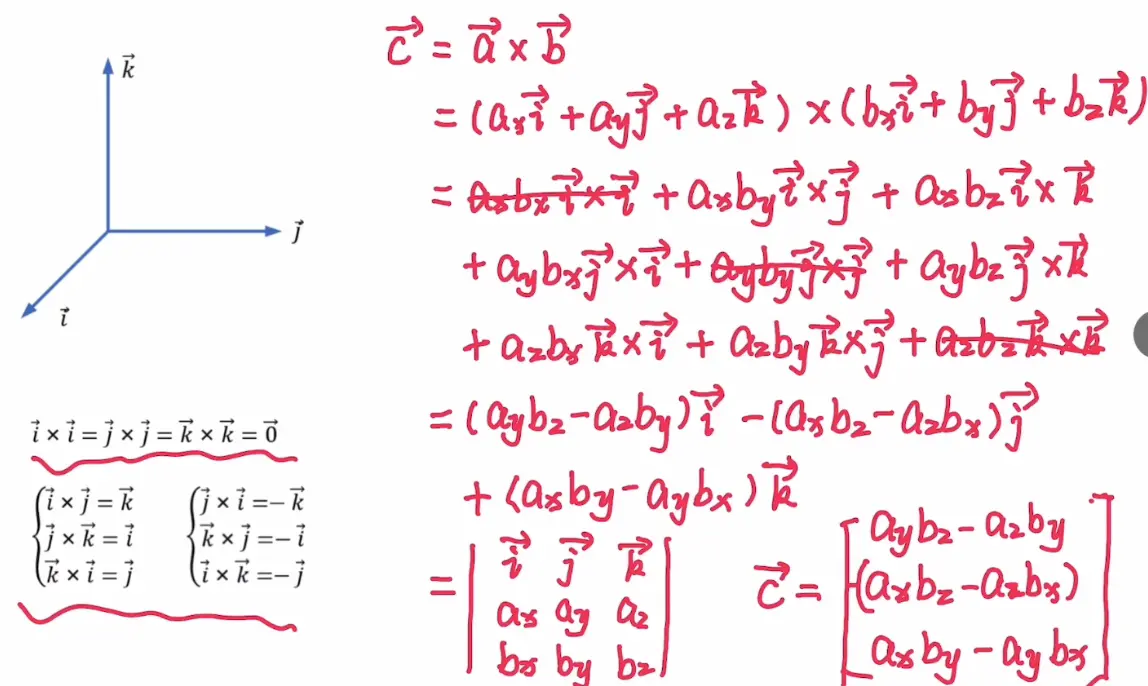 k⃗
j⃗
i⃗
i⃗ × i⃗ = j⃗ × j⃗ = k⃗ × k⃗ = 0⃗
i⃗ × j⃗ = k⃗
j⃗ × k⃗ = i⃗
k⃗ × i⃗ = j⃗
j⃗ × i⃗ = − k⃗
k⃗ × j⃗ = − i⃗
i⃗ × k⃗ = − j⃗
c⃗ = a⃗ × b⃗
= (aₓi⃗ + a_y j⃗ + a_z k⃗) × (bₓi⃗ + b_y j⃗ + b_z k⃗)
= aₓbₓ i⃗ × i⃗ + aₓb_y i⃗ × j⃗ + aₓb_z i⃗ × k⃗
+ a_y bₓ j⃗ × i⃗ + a_y b_y j⃗ × j⃗ + a_y b_z j⃗ × k⃗
+ a_z bₓ k⃗ × i⃗ + a_z b_y k⃗ × j⃗ + a_z b_z k⃗ × k⃗
= (a_y b_z − a_z b_y) i⃗ − (aₓb_z − a_z bₓ) j⃗
+ (aₓb_y − a_y bₓ) k⃗
= | i⃗ j⃗ k⃗ |
| aₓ a_y a_z |
| bₓ b_y b_z |
c⃗ = [ a_y b_z − a_z b_y
−(aₓb_z − a_z bₓ)
aₓb_y − a_y bₓ ]